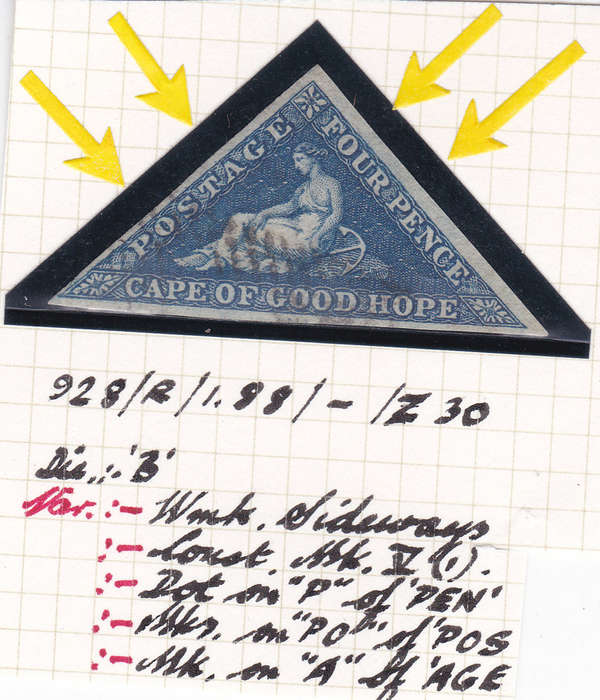 POSTAGE
FOUR PENCE
CAPE OF GOOD HOPE
928/R/1.88/-/Z 30
Die :- 'B'
Var. :- Wmk. Sideways
:- Const. Mk. V (1).
:- Dot on "P" of 'PEN'
:- Mks. on "PO" of 'POS
:- Mk. on "A" of 'AGE